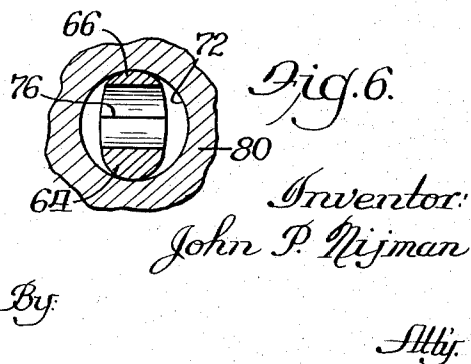 66 72
76 Fig. 6.
64 80
Inventor:
John P. Nijman
By:
Att'y.